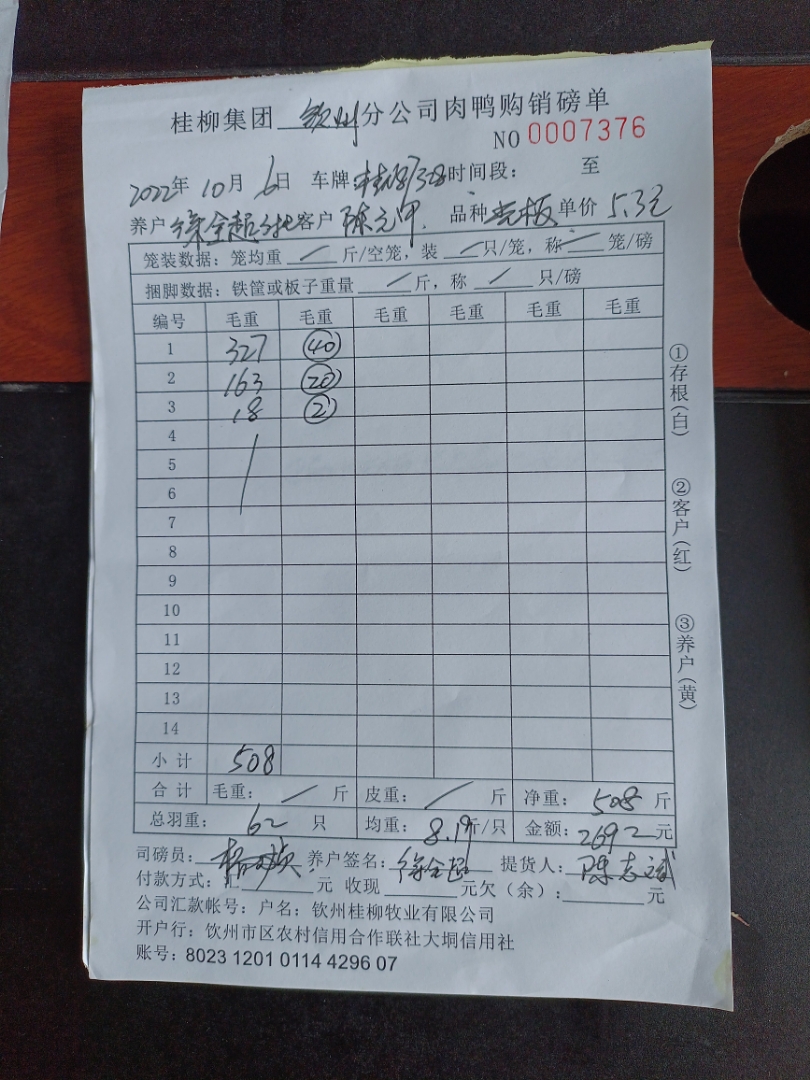 桂柳集团 钦州 分公司肉鸭购销磅单
NO 0007376
2022年 10月 6日 车牌 时间段： 至
养户 徐全超 客户 陈元甲 品种 光板 单价 5.3元
笼装数据：笼均重 / 斤/空笼，装 / 只/笼，称 / 笼/磅
捆脚数据：铁筐或板子重量 / 斤，称 / 只/磅
编号 毛重 毛重 毛重 毛重 毛重 毛重
1 327 40
2 163 20
3 18 2
4
5
6
7
8
9
10
11
12
13
14
小计 508
合计 毛重： / 斤 皮重： / 斤 净重： 508 斤
总羽重： 62 只 均重： 8.19 斤/只 金额： 2692 元
司磅员： 养户签名： 徐全超 提货人： 陈志斌
付款方式：汇 元 收现 元欠（余）： 元
公司汇款帐号：户名：钦州桂柳牧业有限公司
开户行：钦州市区农村信用合作联社大垌信用社
账号：8023 1201 0114 4296 07
①存根(白)
②客户(红)
③养户(黄)